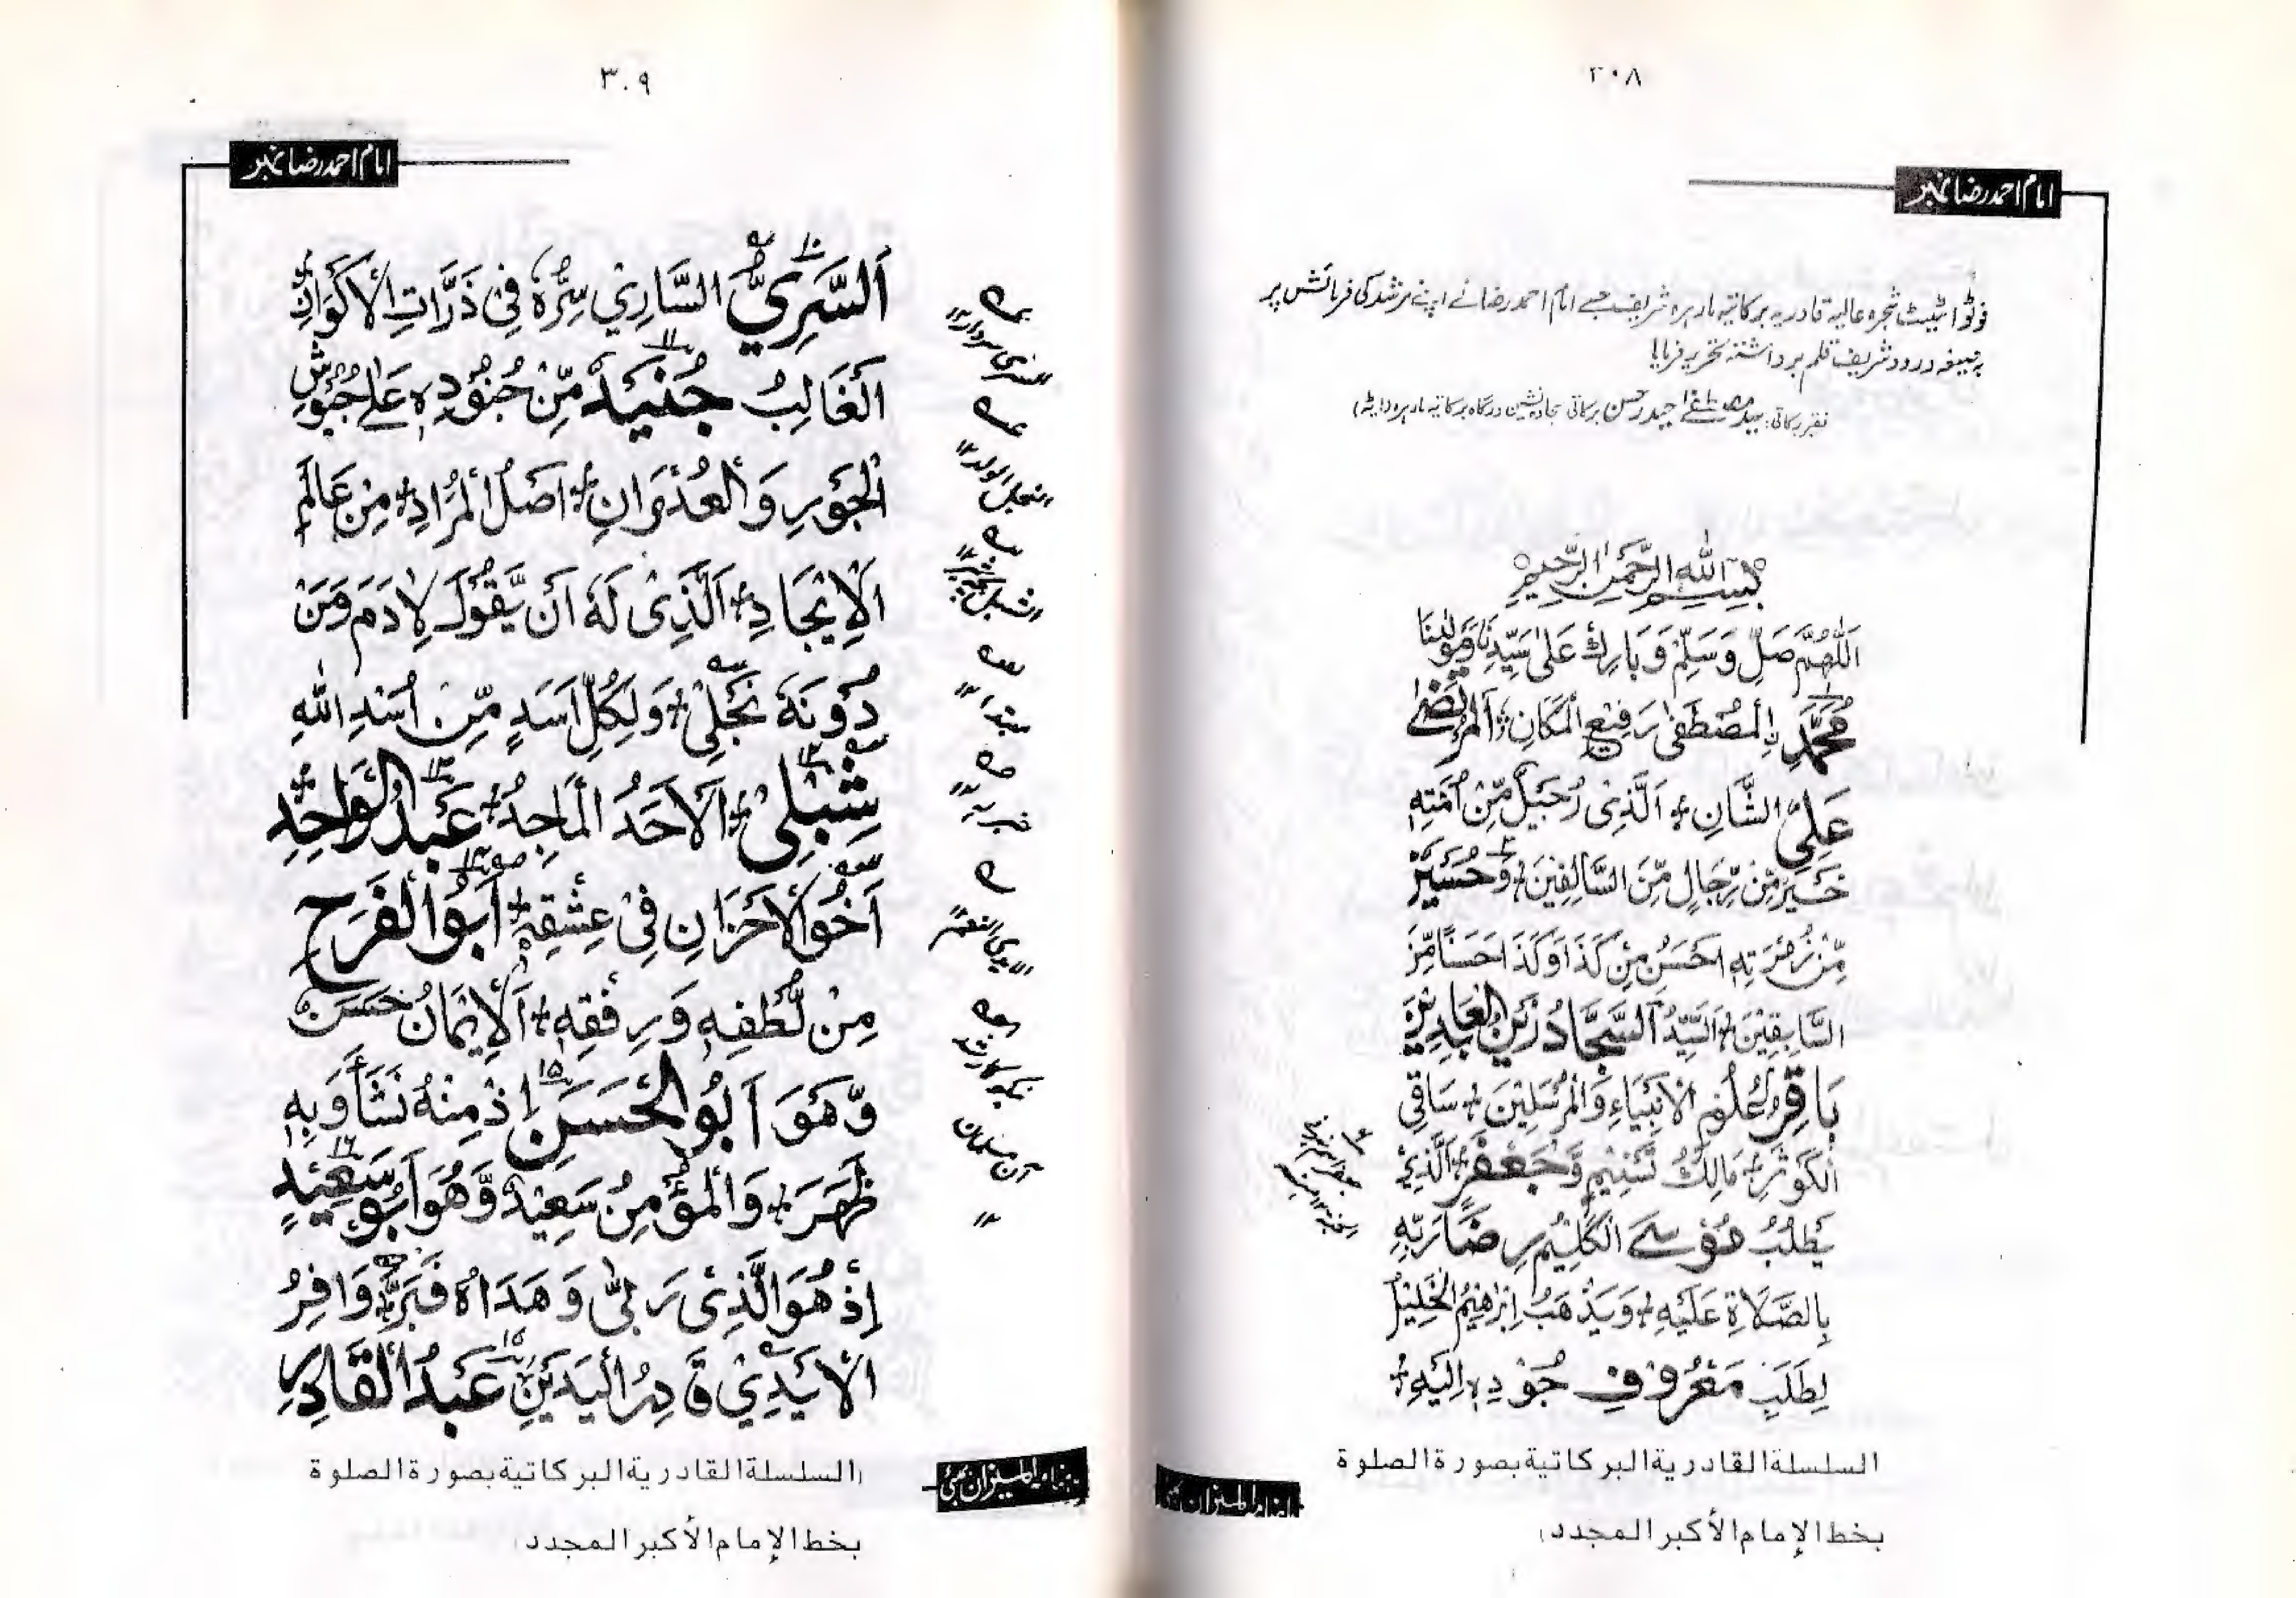 ٣٠٨
امام احمد رضا نمبر
فوٹو اسٹیٹ شجرہ عالیہ قادریہ برکاتیہ مارہرہ شریف جسے امام احمد رضا نے اپنے مرشد کی فرمائش پر
بہ صیغہ درود شریف قلم برداشتہ تحریر فرمایا!
فقیر برکاتی: سید مصطفےٰ حیدر حسن برکاتی سجادہ نشین درگاہ برکاتیہ مارہرہ (ایٹہ)
بِسْمِ اللهِ الرَّحْمٰنِ الرَّحِيْمِ
اَللّٰهُمَّ صَلِّ وَسَلِّمْ وَبَارِكْ عَلٰى سَيِّدِنَا وَمَوْلٰينَا
مُحَمَّدِ نِ الْمُصْطَفٰى رَفِيْعِ الْمَكَانِ الْمُرْتَضٰى
عَلِيِّ الشَّانِ اَلَّذِىْ رُجَيْلٌ مِّنْ اُمَّتِهٖ
خَيْرٌ مِّنْ رِّجَالٍ مِّنَ السَّالِفِيْنَ وَحُسَيْنٌ
مِّنْ زُمْرَتِهٖ اَحْسَنُ مِنْ كَذَا وَكَذَا حَسَنًا مِّنَ
السَّابِقِيْنَ اَلسَّيِّدُ السَّجَّادُ زَيْنُ الْعَابِدِيْنَ
بَاقِرُ عُلُوْمِ الْاَنْبِيَاءِ وَالْمُرْسَلِيْنَ سَاقِى
الْكَوْثَرِ مَالِكُ تَسْنِيْمٍ وَّجَعْفَرٍ اَلَّذِىْ
يَطْلُبُ مُوْسَى الْكَلِيْمُ رِضَا رَبِّهٖ
بِالصَّلَاةِ عَلَيْهِ وَيَذْهَبُ اِبْرٰهِيْمُ الْخَلِيْلُ
لِطَلَبِ مَعْرُوْفِ جُوْدِهٖ اِلَيْهِ
السلسلة القادرية البركاتية بصورة الصلوة
بخط الإمام الأكبر المجدد)
٣٠٩
امام احمد رضا نمبر
اَلسَّرِىُّ السَّارِىْ سِرُّهٗ فِىْ ذَرَّاتِ الْاَكْوَانِ
اَلْغَالِبُ جُنَيْدٌ مِّنْ جُنُوْدِهٖ عَلٰى جُيُوْشِ
الْجَوْرِ وَالْعُدْوَانِ اَصْلُ الْمُرَادِ مِنْ عَالَمِ
الْاِيْجَادِ اَلَّذِىْ لَهٗ اَنْ يَّقُوْلَ لِاٰدَمَ وَمَنْ
دُوْنَهٗ نَجْلِىْ وَلِكُلِّ اَسَدٍ مِّنْ اُسْدِ اللهِ
شِبْلِىْ اَلْاَحَدُ الْمَاجِدُ عَبْدُ الْوَاحِدِ
اَخُو الْاَحْزَانِ فِىْ عِشْقِهٖ اَبُو الْفَرَحِ
مِنْ لُطْفِهٖ وَرِفْقِهٖ اَلْاِيْمَانُ حَسَنٌ
وَّهُوَ اَبُو الْحَسَنِ اِذْ مِنْهُ نَشَاَ وَبِهٖ
ظَهَرَ وَالْمُؤْمِنُ سَعِيْدٌ وَّهُوَ اَبُوْ سَعِيْدٍ
اِذْ هُوَ الَّذِىْ رَبّٰى وَهَدَاهُ فَبَرَّ وَافِرُ
الْاَيْدِىْ قَادِرُ الْيَدَيْنِ عَبْدُ الْقَادِرِ
السری سردار ١٢
النجل الولد ١٢
مبتدا ١٢
خبر ١٢
الایدی النعمۃ ١٢
(السلسلة القادرية البركاتية بصورة الصلوة
بخط الإمام الأكبر المجدد)
ماہنامہ المیزان بمبئی